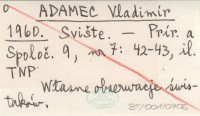 ADAMEC Vladimír
1960. Svište. — Prír. a
Spoloč. 9, nr 7: 42-43, il.
TNP
Własne obserwacje świs-
taków.